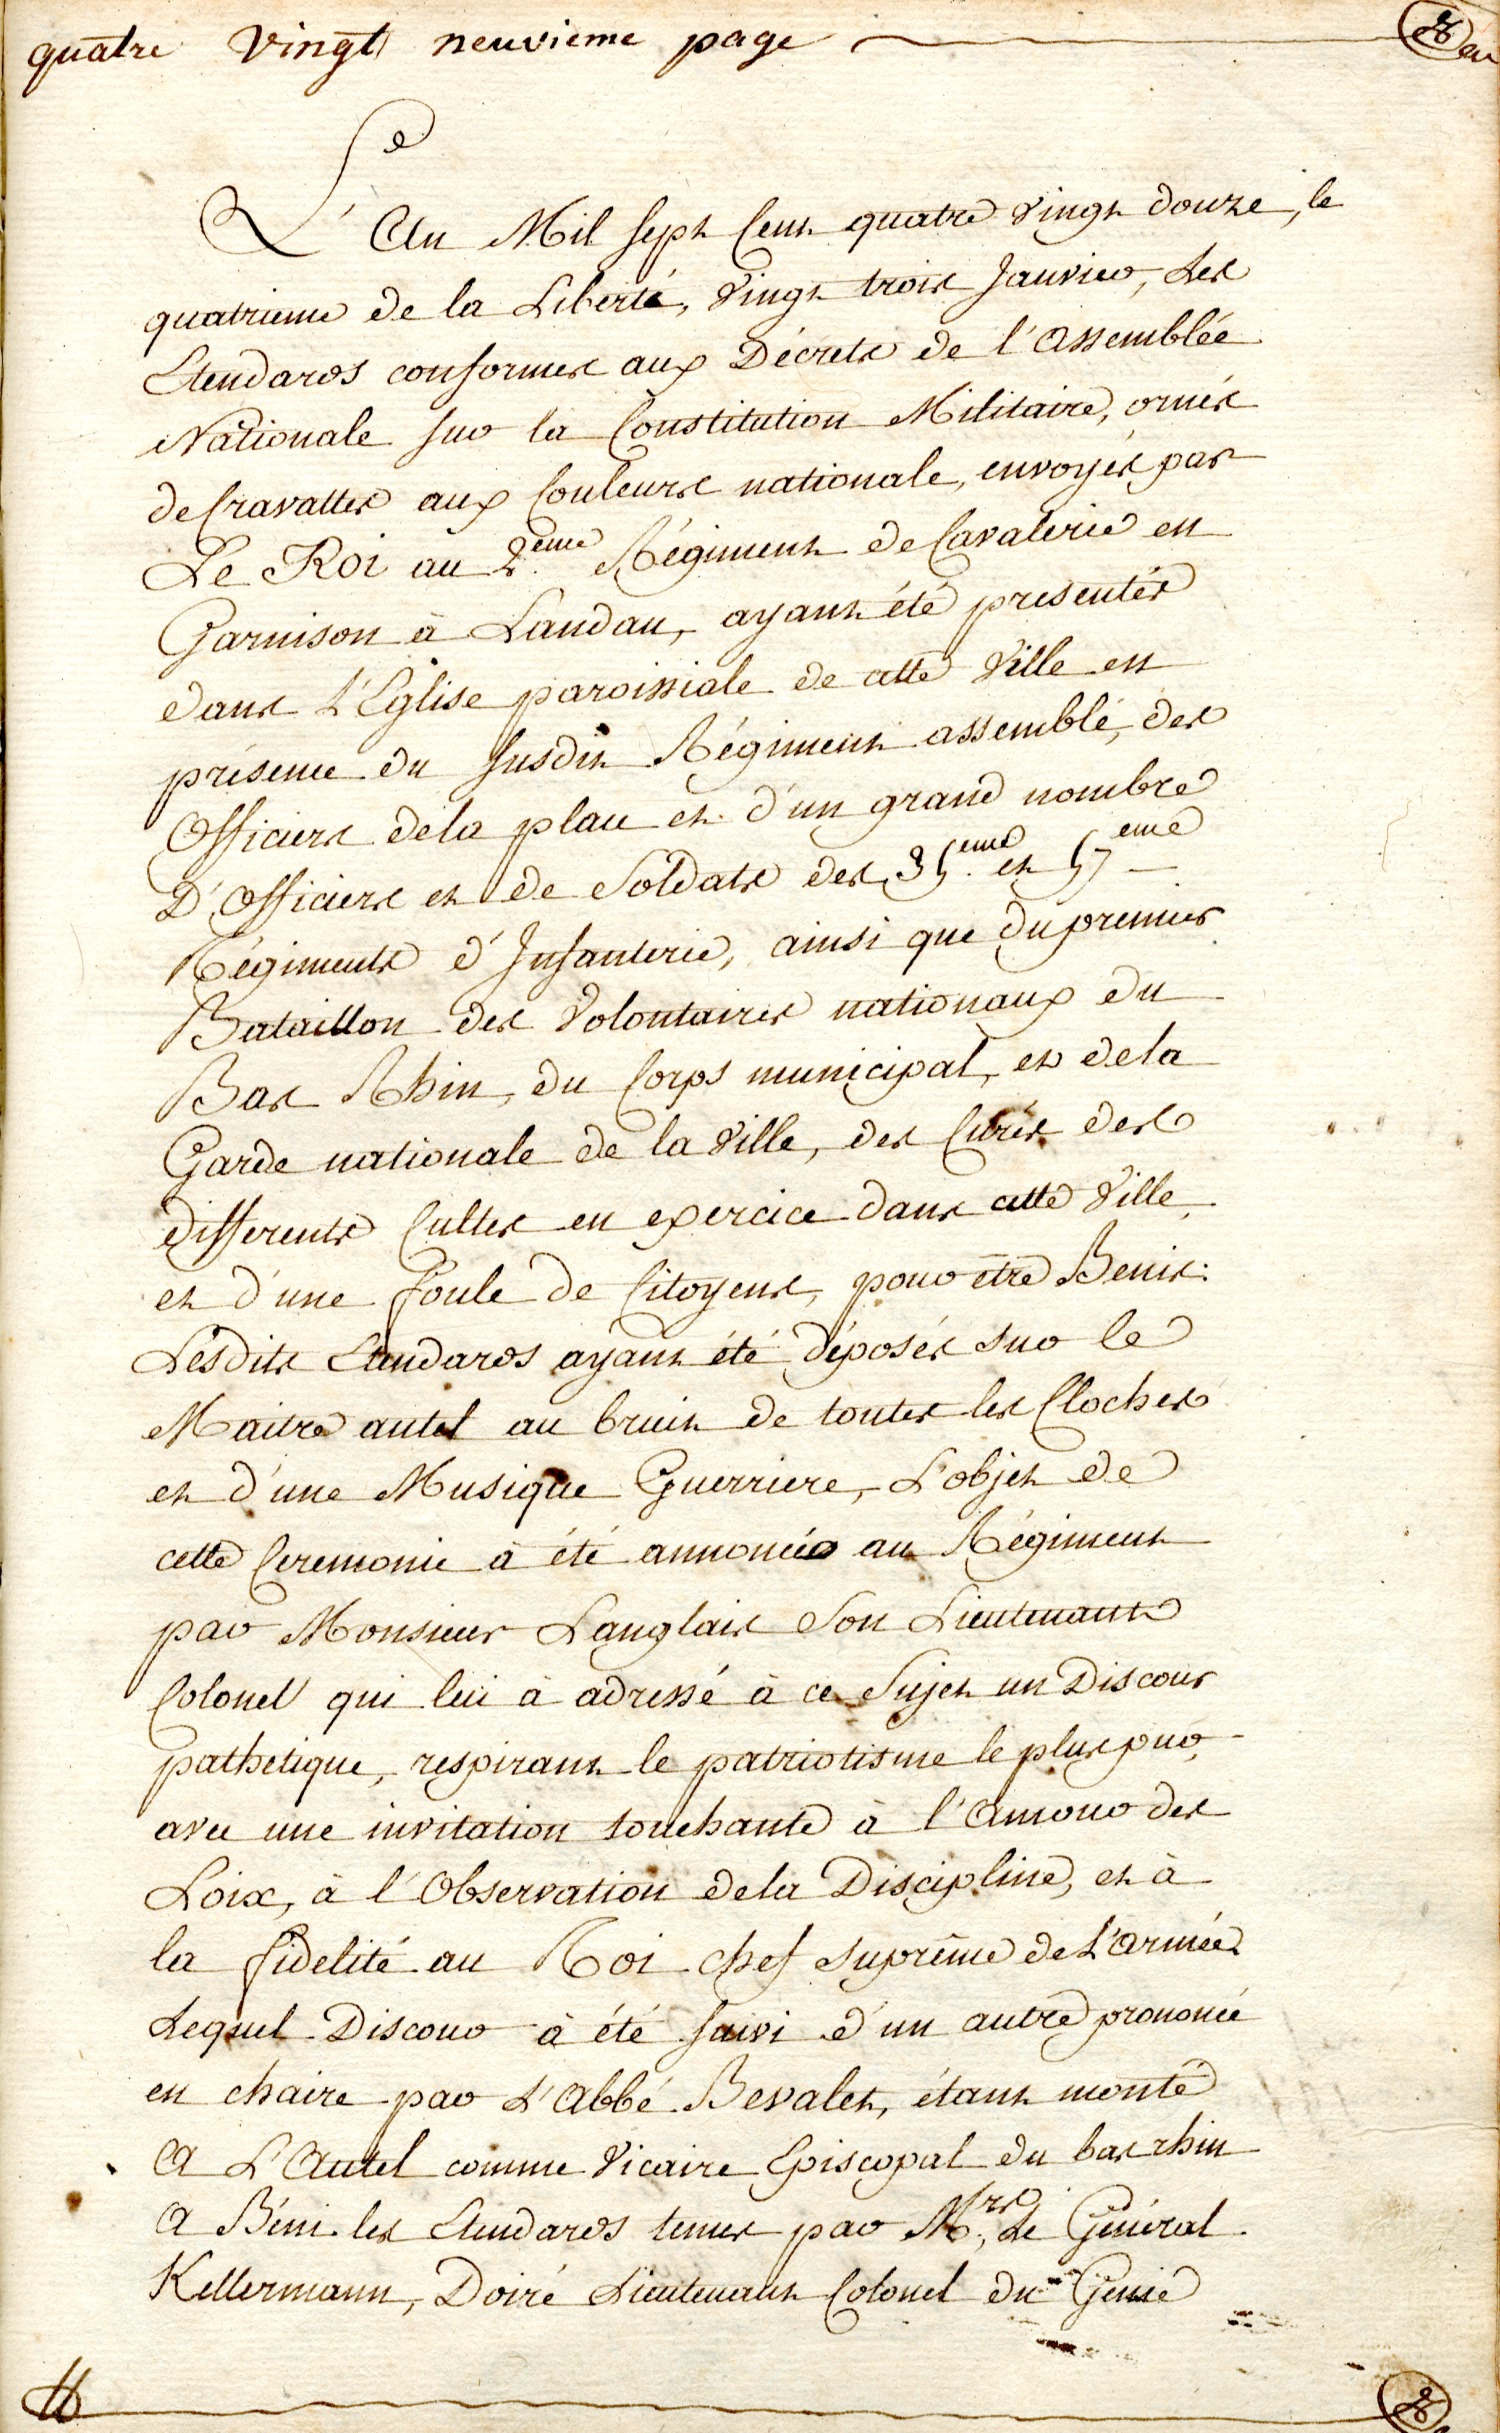 quatre Vingt neuvieme page
L'An Mil Sept Cent quatre Vingt douze, le
quatrieme de la Liberté, Vingt trois Janvier, Les
Etendards conformes aux Décrets de l'Assemblée
Nationale Sur la Constitution Militaire, ornés
de Cravattes aux Couleurs nationale, envoyés par
Le Roi au 2.eme Régiment de Cavalerie en
Garnison à Landau, ayant été presentés
dans L'Eglise paroissiale de cette Ville en
présence du Susdit Régiment assemblé, des
Officiers dela place et d'un grand nombre
D'Officiers et de Soldats des 35.eme et 57eme
Régiments d'Infanterie, ainsi que du premier
Bataillon des Volontaires nationaux du
Bas Rhin, du Corps municipal, et dela
Garde nationale de la Ville, des Curés des
differents Cultes en exercice dans cette Ville,
et d'une Foule de Citoyens, pour être Benis:
Lesdits Etendards ayant été déposés sur le
Maitre autel au bruit de toutes les Cloches
et d'une Musique Guerriere, L'objet de
cette Ceremonie à été annoncée au Régiment
par Monsieur Langlais Son Lieutenant
Colonel qui lui à adressé à ce Sujet un Discours
pathetique, respirant le patriotisme le plus pur,
avec une invitation touchante à l'Amour des
Loix, à l'Observation dela Discipline, et à
la fidelité au Roi chef Suprême de L'armée
Lequel Discour à été Suivi d'un autre prononcé
en chaire par L'Abbé Bevalet, étant monté
A L'Autel comme Vicaire Episcopal du bas rhin
A Béni les Etendards tenus par Mrs. Le Général
Kellermann, Doiré Lieutenant Colonel du Genie